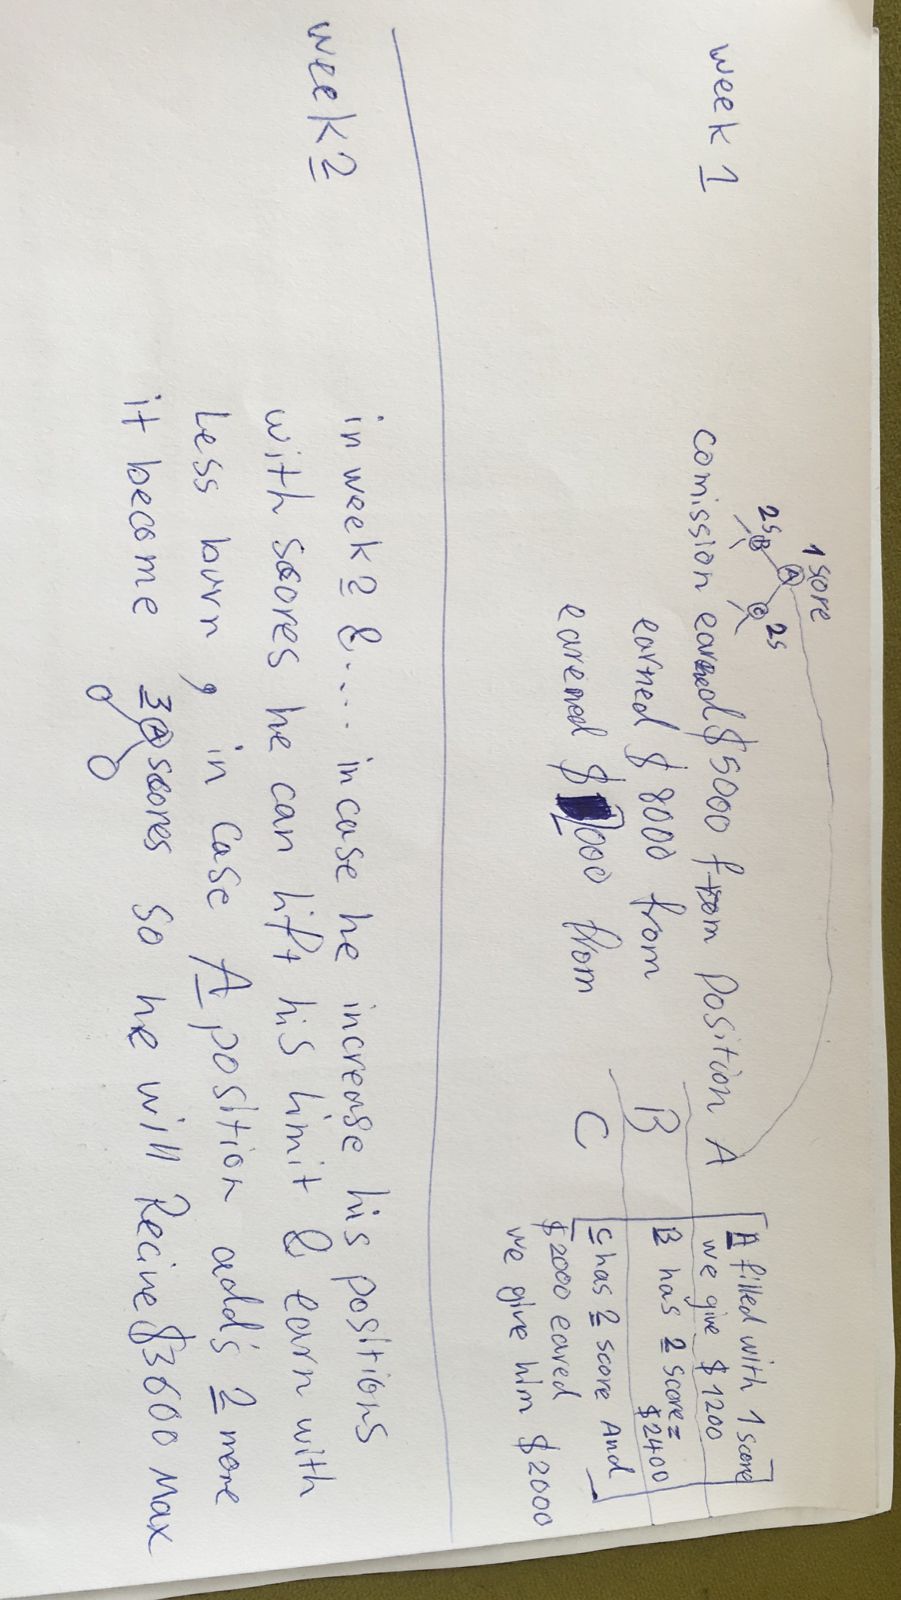 week 1
1 sore
2S B
A
C 2S
comission earend $5000 from Position A
earned $ 8000 from B
earened $ 2000 from C
A filled with 1 score
we give $1200
B has 2 score =
$2400
C has 2 score And
$2000 eared
we give him $2000
week 2
in week 2 & .... incase he increase his positions
with scores he can lift his limit & earn with
Less burn, in case A position adds 2 more
it become 3 scores so he will Recive $3600 Max
A